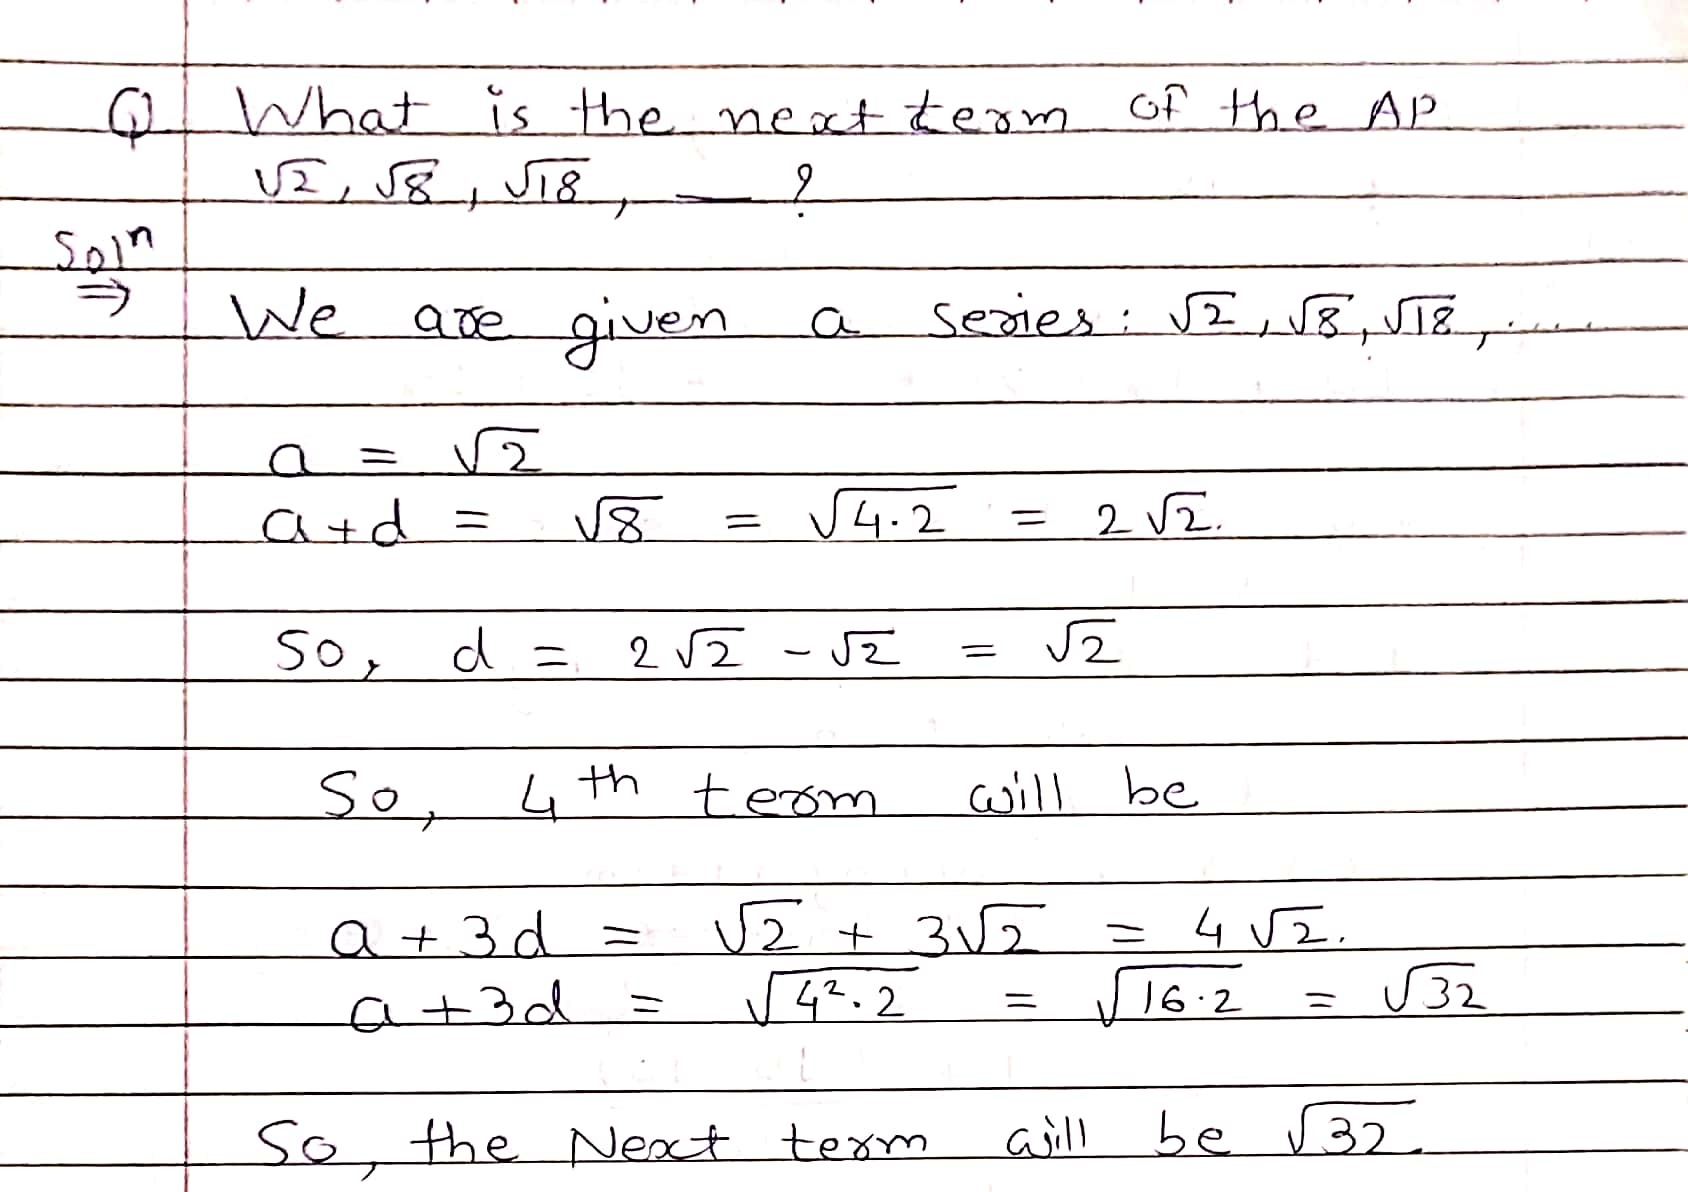 Q What is the next term of the AP
√2, √8, √18, — ?
Solⁿ
⇒ We are given a series: √2, √8, √18, .....
a = √2
a+d = √8 = √4.2 = 2√2.
So, d = 2√2 - √2 = √2
So, 4th term will be
a + 3d = √2 + 3√2 = 4√2.
a + 3d = √4².2 = √16.2 = √32
So, the Next term will be √32.